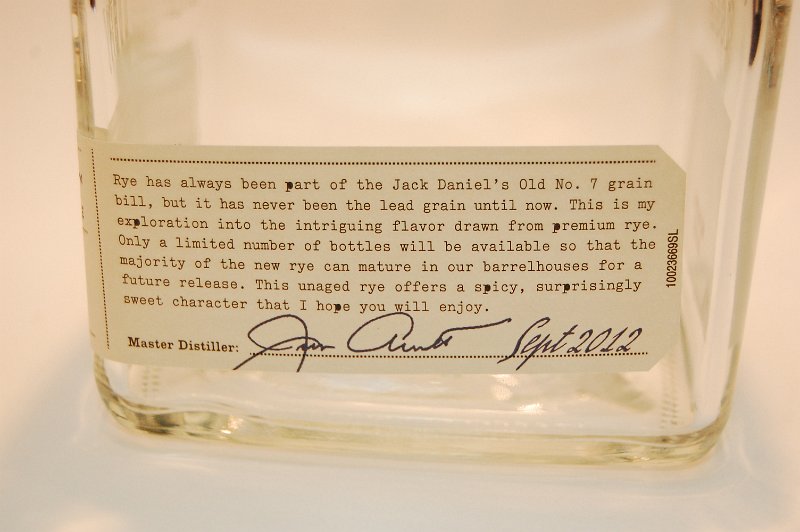 Rye has always been part of the Jack Daniel's Old No. 7 grain
bill, but it has never been the lead grain until now. This is my
exploration into the intriguing flavor drawn from premium rye.
Only a limited number of bottles will be available so that the
majority of the new rye can mature in our barrelhouses for a
future release. This unaged rye offers a spicy, surprisingly
sweet character that I hope you will enjoy.
Master Distiller: Jim Arnett Sept 2012
10023669SL